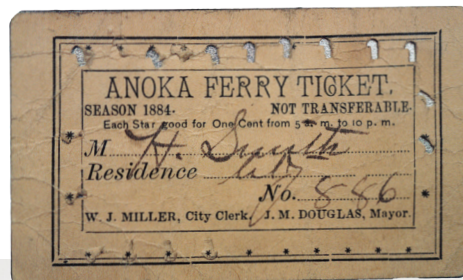 ANOKA FERRY TICKET.
SEASON 1884. NOT TRANSFERABLE.
Each Star good for One Cent from 5 a. m. to 10 p. m.
M H. Smith
Residence City
No. 886
W. J. MILLER, City Clerk, J. M. DOUGLAS, Mayor.